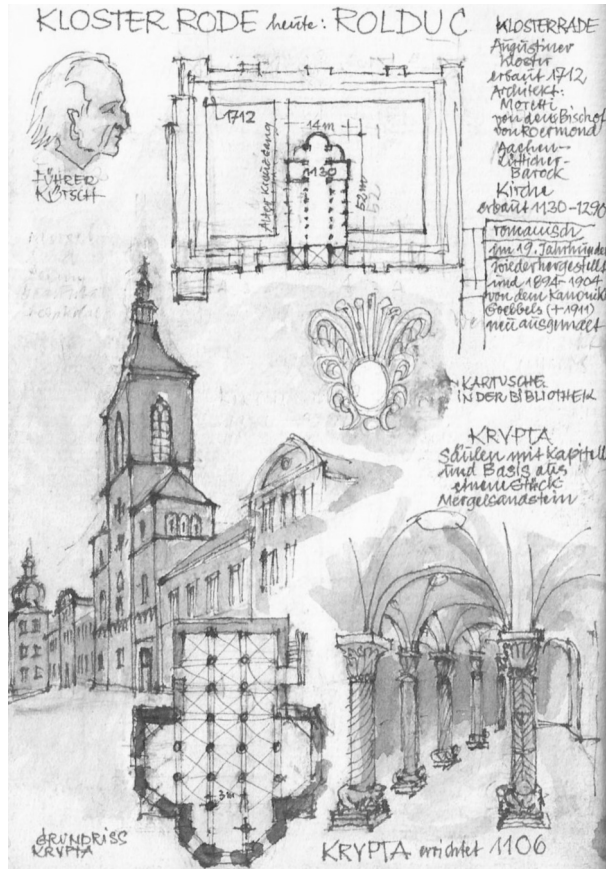 KLOSTER RODE heute: ROLDUC
FÜHRER
1712
14m
1130
52m
52
Alter Kreuzgang
KLOSTERRADE
Augustiner
Kloster
erbaut 1712
Architekt:
Moretti
von dem Bischof
von Roermond
Aachen-
Lütticher-
Barock
Kirche
erbaut 1130-1290
romanisch
im 19. Jahrhundert
wiederhergestellt
und 1894-1904
von dem Kanonik
Goebbels (+1911)
neu ausgemalt
KARTUSCHE
IN DER BIBLIOTHEK
KRYPTA
Säulen mit Kapitell
und Basis aus
einem Stück
Mergelsandstein
3m
GRUNDRISS
KRYPTA
KRYPTA errichtet 1106